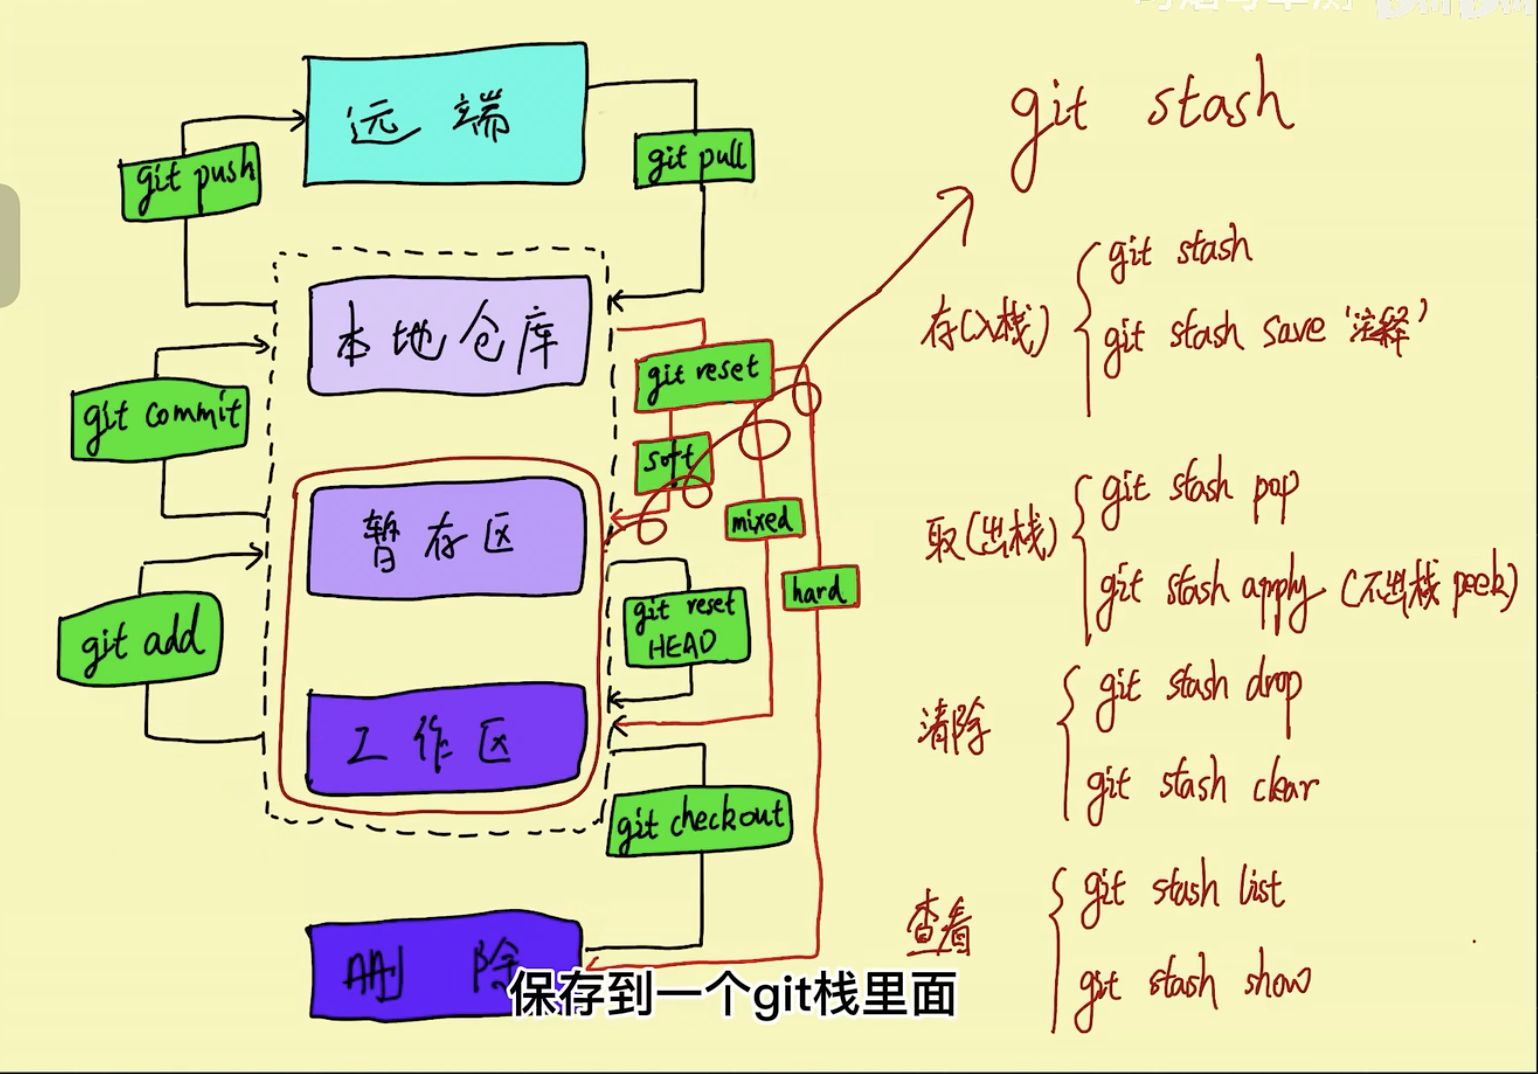 远端
git push
git pull
本地仓库
git commit
git reset
soft
mixed
hard
暂存区
git add
git reset
HEAD
工作区
git checkout
删除
git stash
存(入栈)
git stash
git stash save '注释'
取(出栈)
git stash pop
git stash apply (不出栈 peek)
清除
git stash drop
git stash clear
查看
git stash list
git stash show
保存到一个git栈里面